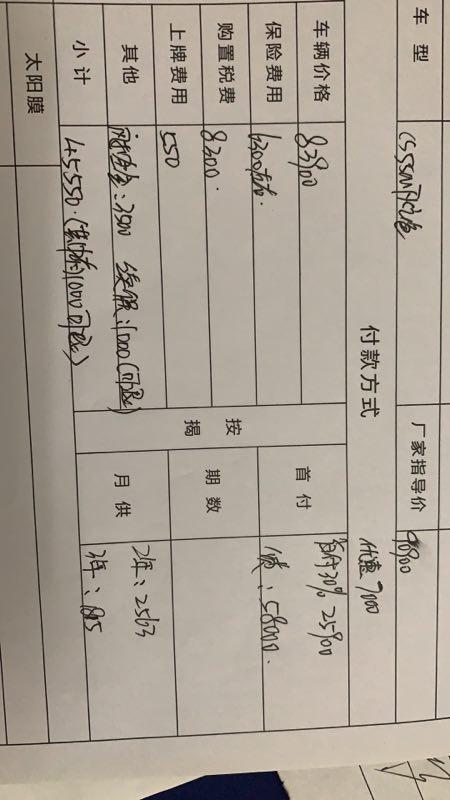 车型 CS55 厂家指导价 90900
付款方式 优惠7000
车辆价格 83900 首付 首付30% 25900
保险费用 6300左右. 贷:58000.
购置税费 8300. 按揭 期数
上牌费用 550
其他 :2500 续保:1000(可退) 月供 2年:2563
小计 45550.(其中有1000可退) 3年:
太阳膜